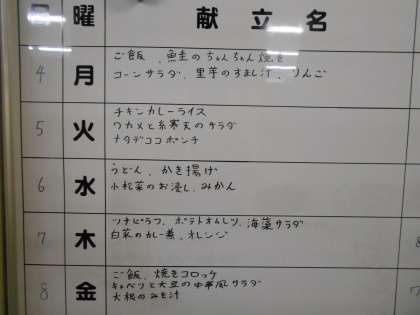 日 曜 献立名
4 月 ご飯、鮭のちゃんちゃん焼き
コーンサラダ、里芋のすまし汁、りんご
5 火 チキンカレーライス
ワカメと糸寒天のサラダ
ナタデココポンチ
6 水 うどん、かき揚げ
小松菜のお浸し、みかん
7 木 ツナピラフ、ポテトオムレツ、海藻サラダ
白菜のカレー煮、オレンジ
8 金 ご飯、焼きコロッケ
キャベツと大豆の中華風サラダ
大根のみそ汁